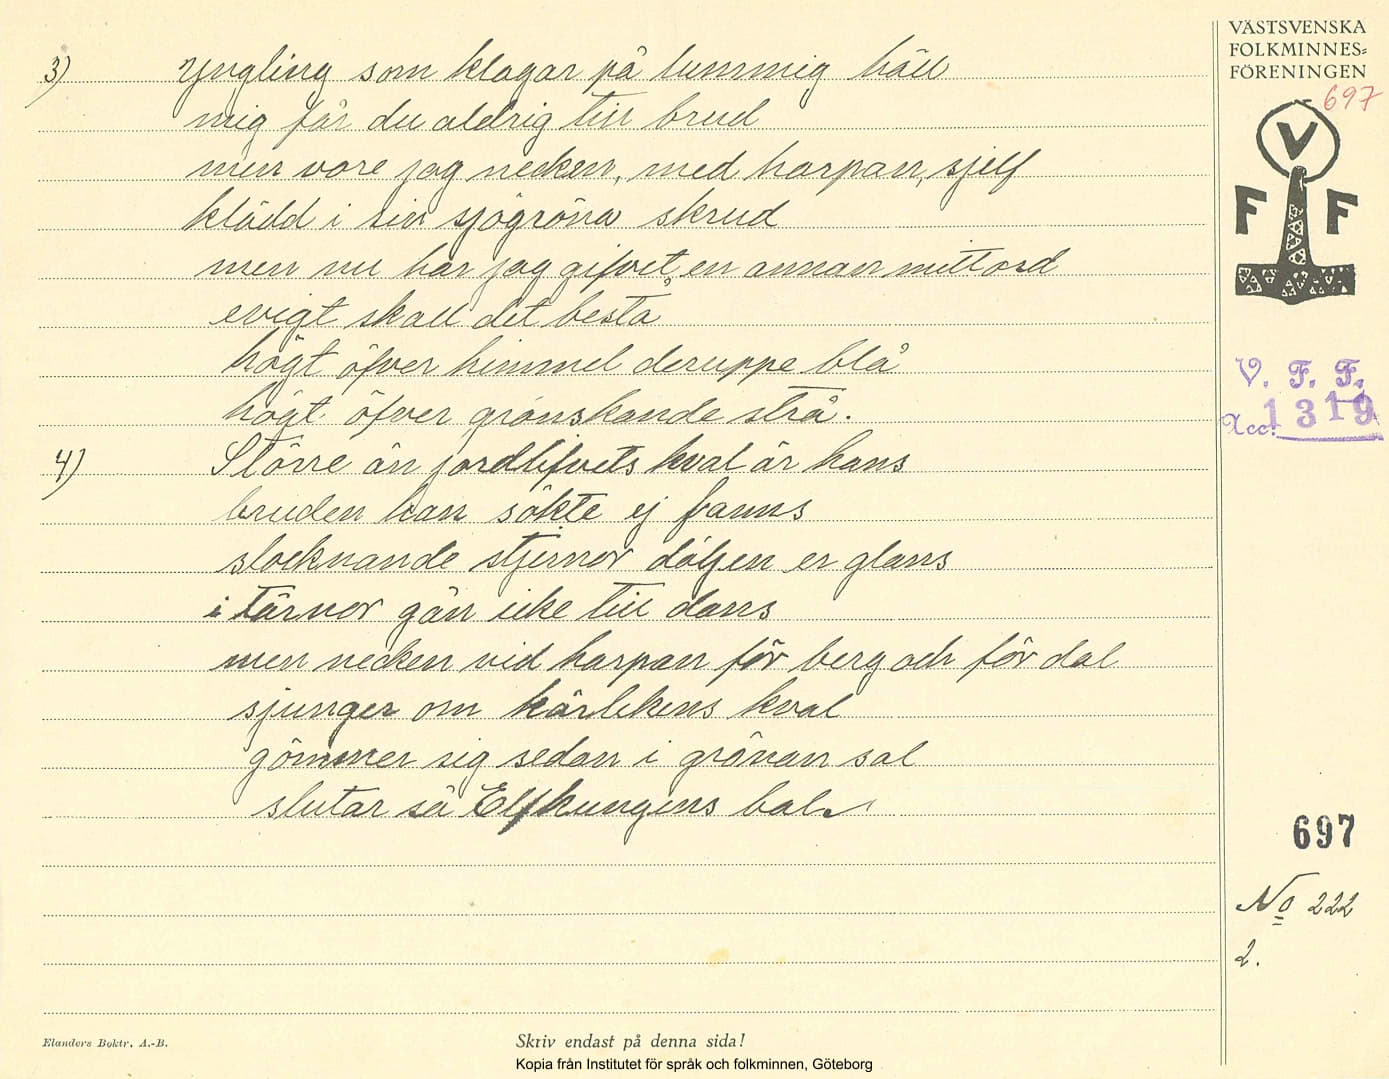 3) Yngling som klagar på lummig häll
mig får du aldrig till brud
men vore jag necken, med harpan, sjelf
klädd i sin sjögröna skrud
men nu har jag gifvet en annan mitt ord
evigt skall det bestå
högt öfver himmel deruppe blå
högt öfver grönskande strå.
4) Större än jordlifvets kval är hans
bruden han sökte ej fanns
slocknande stjernor döljen er glans
i tärnor gån icke till dans
men necken vid harpan för berg och för dal
sjunger om kärlekens kval
gömmer sig sedan i grönan sal
slutar så Elfkungens bal.
Elanders Boktr. A.-B.
Skriv endast på denna sida!
Kopia från Institutet för språk och folkminnen, Göteborg
VÄSTSVENSKA
FOLKMINNES-
FÖRENINGEN
697
V
F F
V. F. F.
Acc. 1319
697
No 222
2.